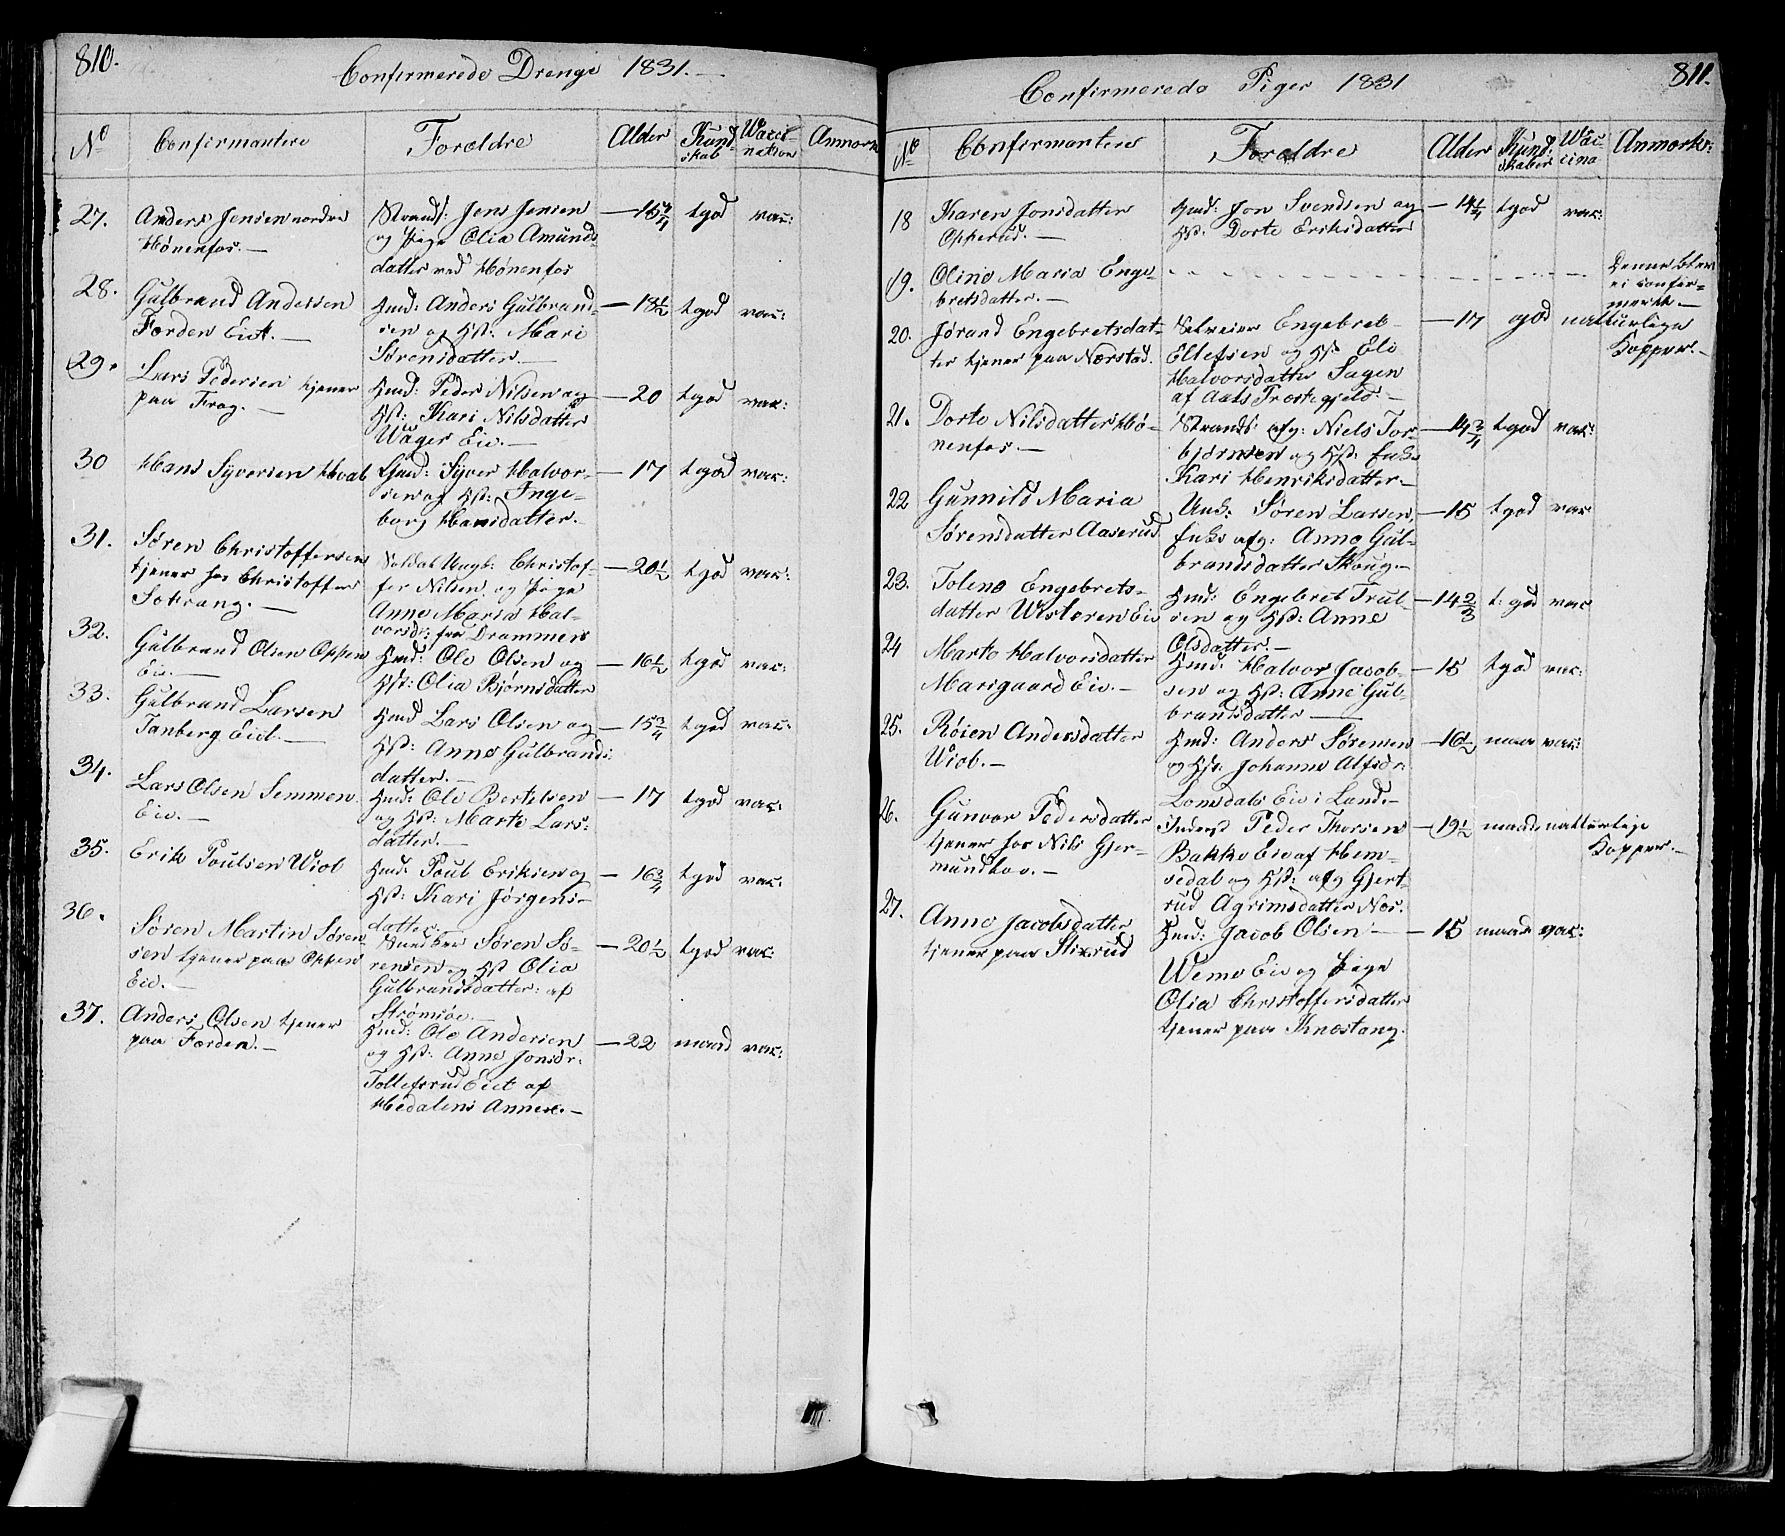 810.
Confirmerede Drenge 1831.
No
Confirmantere
Forældre
Alder
Kundskab
Waccination
Anmærk
27.
Anders Jensen nordre
Hönenfos.—
Strands: Jens Jensen
og Pige Olia Amunds
datter ved Hönenfos
— 15 3/4
tgod
vac:
28.
Gulbrand Andersen
Færden Eiet.—
Hmd: Anders Gulbrand-
sen og Hst: Mari
Sörensdatter.—
— 18 1/2
tgod
vac:
29.
Lars Pedersen tjener
paa Frog.—
Hmd: Peder Nilsen og
Hst: Kari Nilsdatter
Wager Eie.—
— 20
tgod
vac:
30
Hans Syversen Hval
Gmd: Syver Halvor-
sen og Hst: Inge-
borg Hansdatter.
— 17
tgod
vac:
31.
Sören Christoffersen
tjener hos Christoffer
Sokrang.—
Soldat Ungk: Christof-
fer Nilsen og Pige
Anne Maria Hal-
vorsdr: fra Drammen
— 20 1/2
tgod
vac:
32.
Gulbrand Olsen Oppen
Eie.—
Hmd: Ole Olsen og
Hst: Olia Björnsdatter
— 16 1/2
tgod
vac:
33.
Gulbrand Larsen
Tanberg Eiet.—
Hmd Lars Olsen og
Hst: Anne Gulbrands:
datter.—
— 15 3/4
tgod
vac:
34.
Lars Olsen Semmen
Eie.—
Hmd: Ole Bertelsen
og Hst: Marte Lars:
datter.—
— 17
tgod
vac:
35.
Erik Poulsen Wiol
Hmd: Poul Eriksen og
Hst: Kari Jörgens-
datter.
— 16 3/4
tgod
vac:
36.
Sören Martin Sören
sen tjener paa Oppen
Eie.—
Snedker Sören Sö-
rensen og Hst Olia
Gulbrandsdatter: af
Strömsöe.—
— 20 1/2
tgod
vac:
37.
Anders Olsen tjener
paa Færden.—
Hmd: Ole Andersen
og Hst: Anne Jonsdr.
Tollefsrud Eiet af
Hedalens Annex.—
— 22
maad
vac:
811.
Confirmerede Piger 1831
No
Confirmantere
Forældre
Alder
Kundskaber
Waccina
Anmærk:
18
Karen Jonsdatter
Opperud.—
Hmd: Jon Svendsen og
Hst: Dorte Eriksdatter
— 14 1/4
tgod
vac:
19.
Oline Maria Enge-
bretsdatter.—
Denne blev
ei confir-
meret.—
20.
Jörand Engebretsdat-
ter tjener paa Nærstad.
Selveier Engebret
Ellefsen og Hst: Eli
Halvorsdatter Sagen
af Aals Præstegjeld.—
— 17
god
naturlige
Kopper.—
21.
Dorte Nilsdatter Hö-
nenfos.—
Strands: afg: Niels Tor-
björnsen og Hst: Enke
Kari Henriksdatter.—
— 14 3/4
tgod
vac:
22
Gunnild Maria
Sörensdatter Aaserud
Und: Sören Larsen,
Enke afg: Anne Gul-
brandsdatter Skoug.—
— 15
tgod
vac
23.
Tolene Engebrets-
datter Westeren Eie
Hmd: Engebret Trul-
sen og Hst: Anne
Olsdatter.—
— 14 2/3
t: god
vac
24
Marte Halvorsdatter
Marigaard Eie.—
Hmd: Halvor Jacob-
sen og Hst: Anne Gul-
brandsdatter —
— 15
tgod
vac:
25.
Röien Andersdatter
Wiol.—
Hmd: Anders Sörensen
og Hst: Johanne Alfsdr:
Lomsdals Eie i Land.—
— 16 1/2
maa
vac:
26.
Gunvor Pedersdatter
tjener hos Nils Gjer-
mundbo.—
Inderst Peder Thorsen
Bakke Eie af Hem-
sedal og Hst: afg Gjert-
rud Agrimsdatter Næs.
— 19 1/2
maade
naturlige
Kopper.—
27.
Anne Jacobsdatter
tjener paa Stixrud
Hmd: Jacob Olsen —
Weme Eie og Pige
Olia Christoffersdatter
tjener paa Knæstang.
— 15
maade
vac: